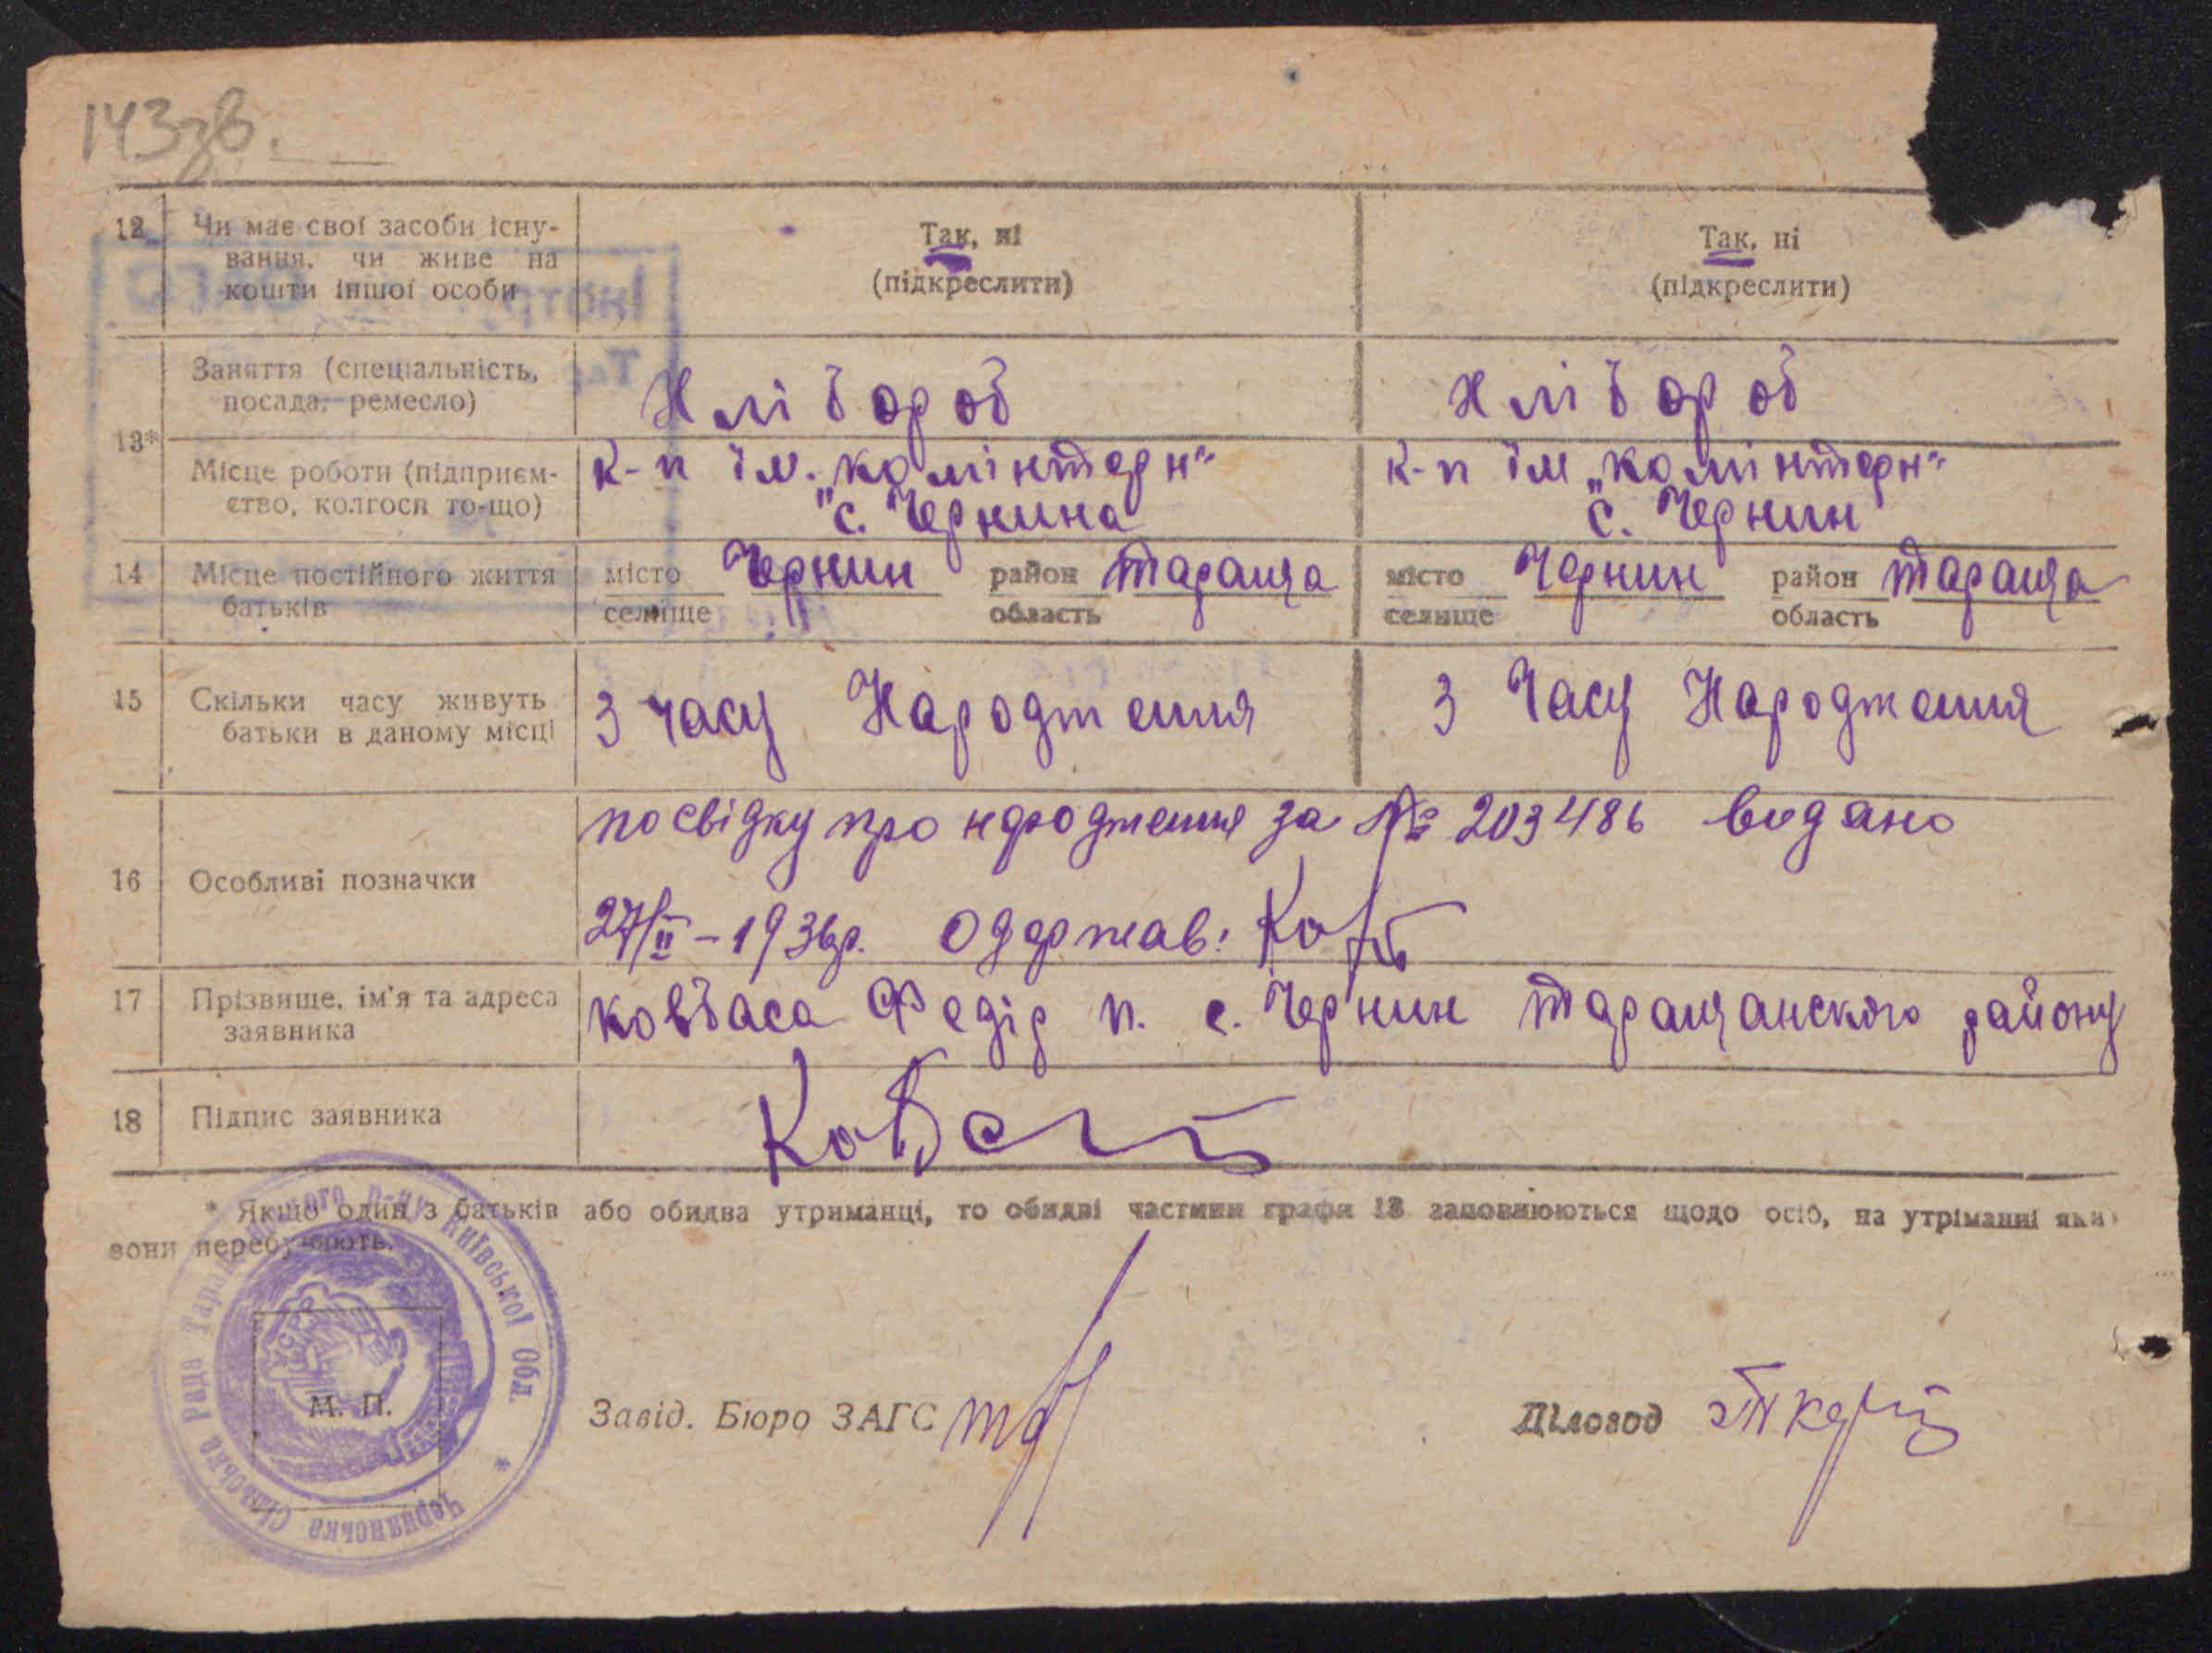 143зв.
12 Чи має свої засоби існу-
вання, чи живе на
кошти іншої особи
Так, ні
(підкреслити)
Так, ні
(підкреслити)
13*
Заняття (спеціальність,
посада, ремесло)
Хлібороб
Хлібороб
Місце роботи (підприєм-
ство, колгосп то-що)
к-п ім. „комінтерн"
с. Чернина
к-п ім „комінтерн"
с. Чернин
14 Місце постійного життя
батьків
місто Чернин район Тараща
селище область
місто Чернин район Тараща
селище область
15 Скільки часу живуть
батьки в даному місці
З часу Народження
З Часу Народження
16 Особливі позначки
посвідку про народження за № 203486 видано
27/II – 1936р. Одержав:
17 Прізвище, ім'я та адреса
заявника
Ковбаса Федір п. с. Чернин Таращанского району
18 Підпис заявника
* Якщо один з батьків або обидва утриманці, то обидві частини графи 13 заповнюються щодо осіб, на утріманні яких
вони перебувають.
Чернинська Сільська Рада Таращанського р-ну Київської Обл. *
УСРР
М. П.
Завід. Бюро ЗАГС
Діловод